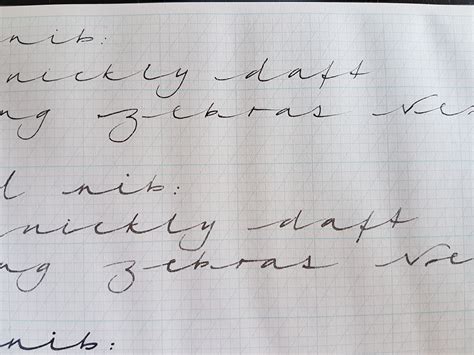 nib:
uickly daft
ng zebras vex
l nib:
uickly daft
ng zebras ve
nib: